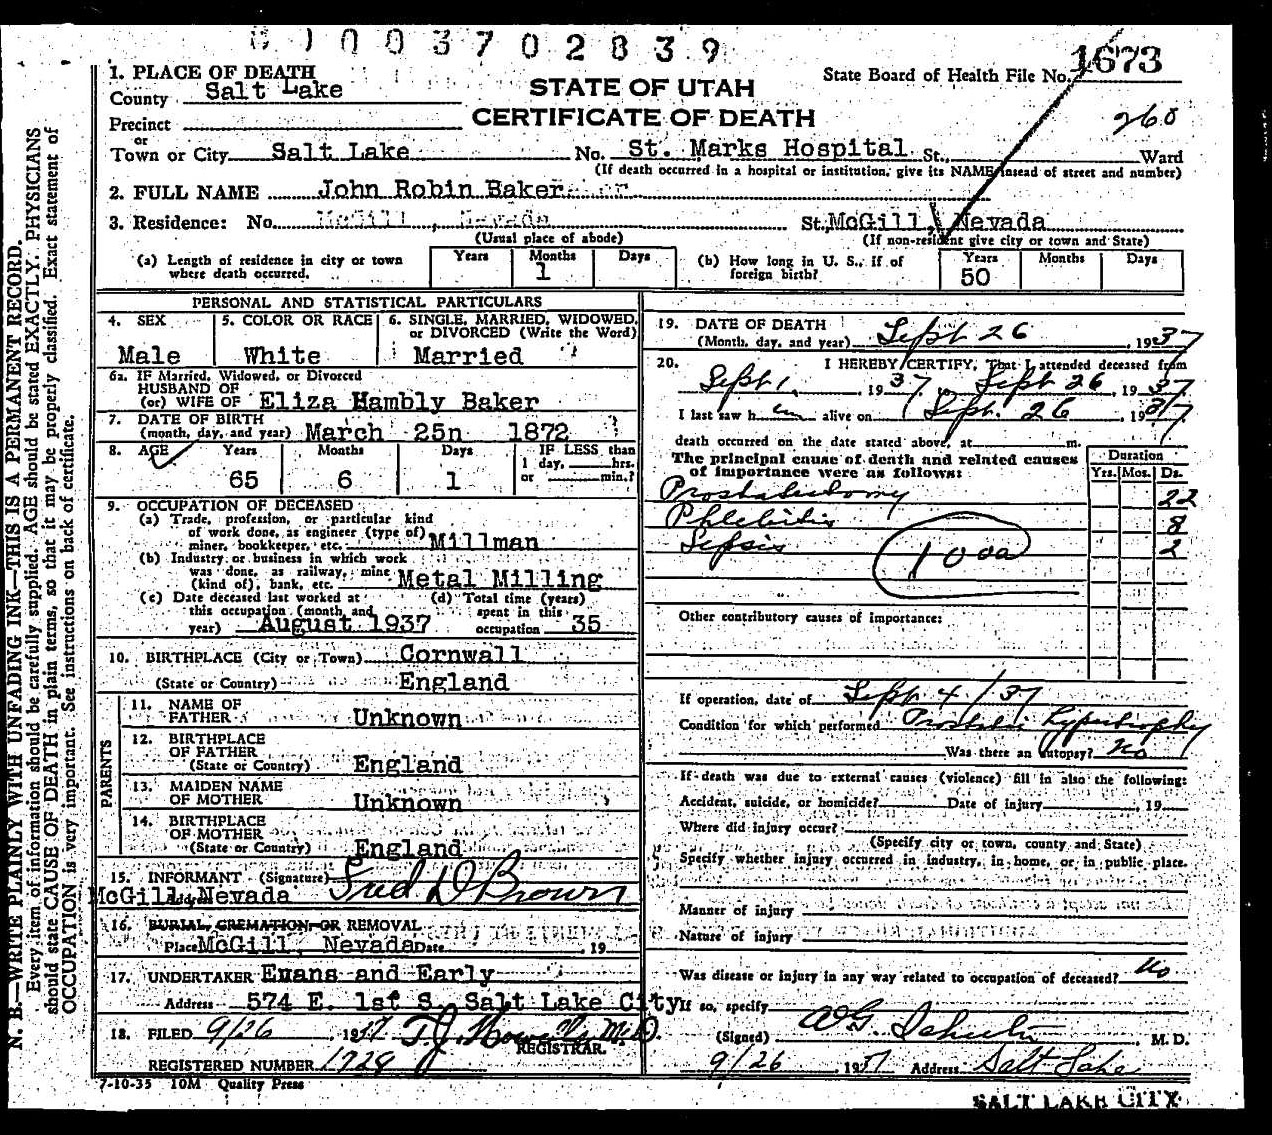 003702839
1673
State Board of Health File No.
260
STATE OF UTAH
CERTIFICATE OF DEATH
1. PLACE OF DEATH
County Salt Lake
Precinct
or
Town or City Salt Lake No. St. Marks Hospital St., Ward
(If death occurred in a hospital or institution, give its NAME instead of street and number)
2. FULL NAME John Robin Baker
3. Residence: No. McGill, Nevada St., McGill, Nevada
(Usual place of abode) (If non-resident give city or town and State)
(a) Length of residence in city or town where death occurred. Years Months 1 Days
(b) How long in U. S., if of foreign birth? Years 50 Months Days
PERSONAL AND STATISTICAL PARTICULARS
4. SEX Male
5. COLOR OR RACE White
6. SINGLE, MARRIED, WIDOWED, or DIVORCED (Write the Word) Married
6a. IF Married, Widowed, or Divorced
HUSBAND OF
(or) WIFE OF Eliza Hambly Baker
7. DATE OF BIRTH
(month, day, and year) March 25n 1872
8. AGE Years 65 Months 6 Days 1
IF LESS than
1 day, hrs.
or min.?
9. OCCUPATION OF DECEASED
(a) Trade, profession, or particular kind
of work done, as engineer (type of)
miner, bookkeeper, etc. Millman
(b) Industry or business in which work
was done, as railway, mine
(kind of), bank, etc. Metal Milling
(c) Date deceased last worked at
this occupation (month, and
year) August 1937
(d) Total time (years)
spent in this
occupation 35
10. BIRTHPLACE (City or Town) Cornwall
(State or Country) England
PARENTS
11. NAME OF
FATHER Unknown
12. BIRTHPLACE
OF FATHER
(State or Country) England
13. MAIDEN NAME
OF MOTHER Unknown
14. BIRTHPLACE
OF MOTHER
(State or Country) England
15. INFORMANT (Signature) Fred D Brown
Address McGill, Nevada
16. BURIAL, CREMATION, OR REMOVAL
Place McGill, Nevada Date , 19
17. UNDERTAKER Evans and Early
Address 574 E. 1st S. Salt Lake City
18. FILED 9/26, 1937 T. J. M.D.
REGISTRAR.
REGISTERED NUMBER 1728
7-10-35 10M Quality Press
19. DATE OF DEATH
(Month, day, and year) Sept 26, 1937
20. I HEREBY CERTIFY, That I attended deceased from
Sept 1, 1937, Sept 26, 1937
I last saw him alive on Sept. 26 1937
death occurred on the date stated above, at m.
The principal cause of death and related causes
of importance were as follows:
Duration
Yrs. Mos. Ds.
Prostatectomy 22
Phlebitis 8
Sepsis 2
Other contributory causes of importance:
If operation, date of Sept 4/37
Condition for which performed Prostatic Hypertrophy
Was there an autopsy? No
If death was due to external causes (violence) fill in also the following:
Accident, suicide, or homicide? Date of injury , 19
Where did injury occur?
(Specify city or town, county and State)
Specify whether injury occurred in industry, in home, or in public place.
Manner of injury
Nature of injury
Was disease or injury in any way related to occupation of deceased? No
If so, specify
(Signed) , M. D.
9/26, 1937 Address Salt Lake
SALT LAKE CITY
N. B.—WRITE PLAINLY WITH UNFADING INK—THIS IS A PERMANENT RECORD.
Every item of information should be carefully supplied. AGE should be stated EXACTLY. PHYSICIANS
should state CAUSE OF DEATH in plain terms, so that it may be properly classified. Exact statement of
OCCUPATION is very important. See instructions on back of certificate.